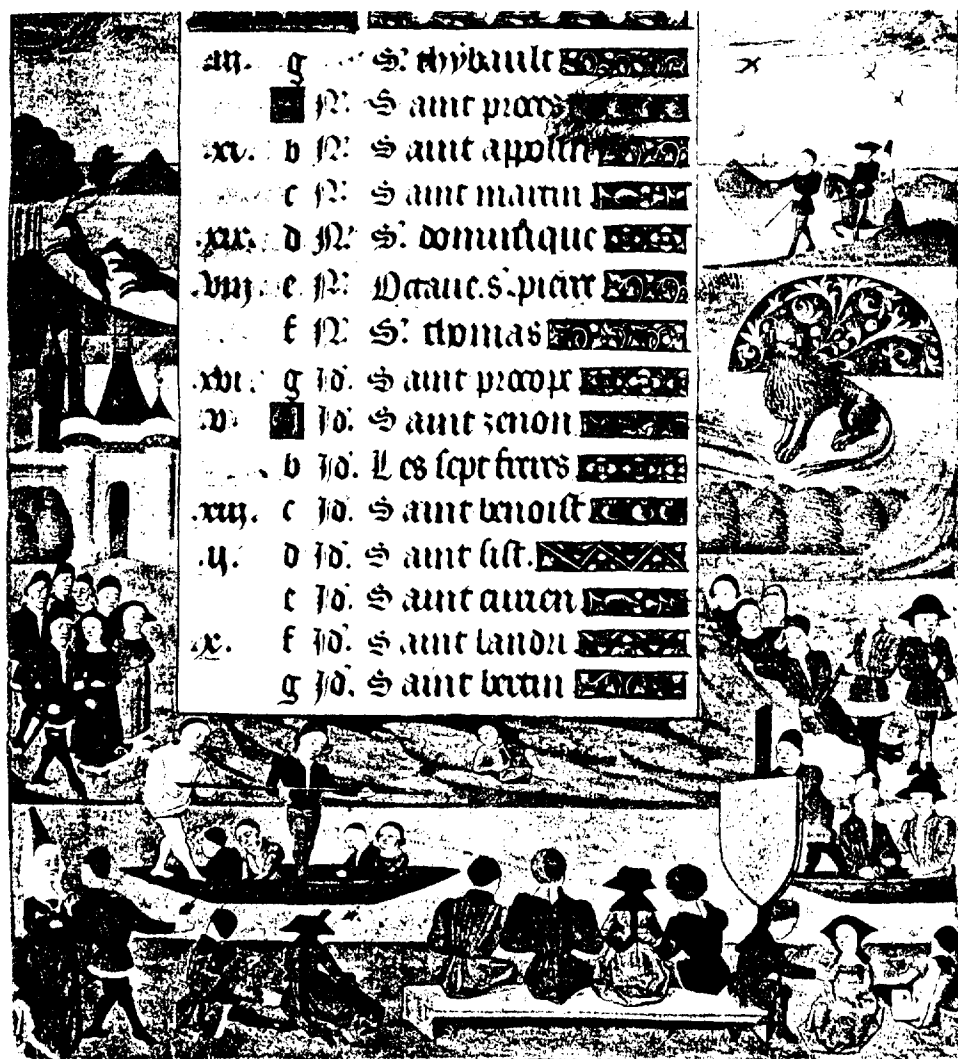 g S. thybault
N. Saint proces
.xi. b N. Saint
c N. Saint martin
.xix. d N. S. dominique
.viij. e N. Octaue. s. pierre
f N. S. thomas
.xvi. g Id. Saint procope
.v. Id. Saint zenon
b Id. Les sept freres
.xiij. c Id. Saint benoist
.ij. d Id. Saint sist.
e Id. Saint
.x. f Id. Saint landri
g Id. Saint bertin